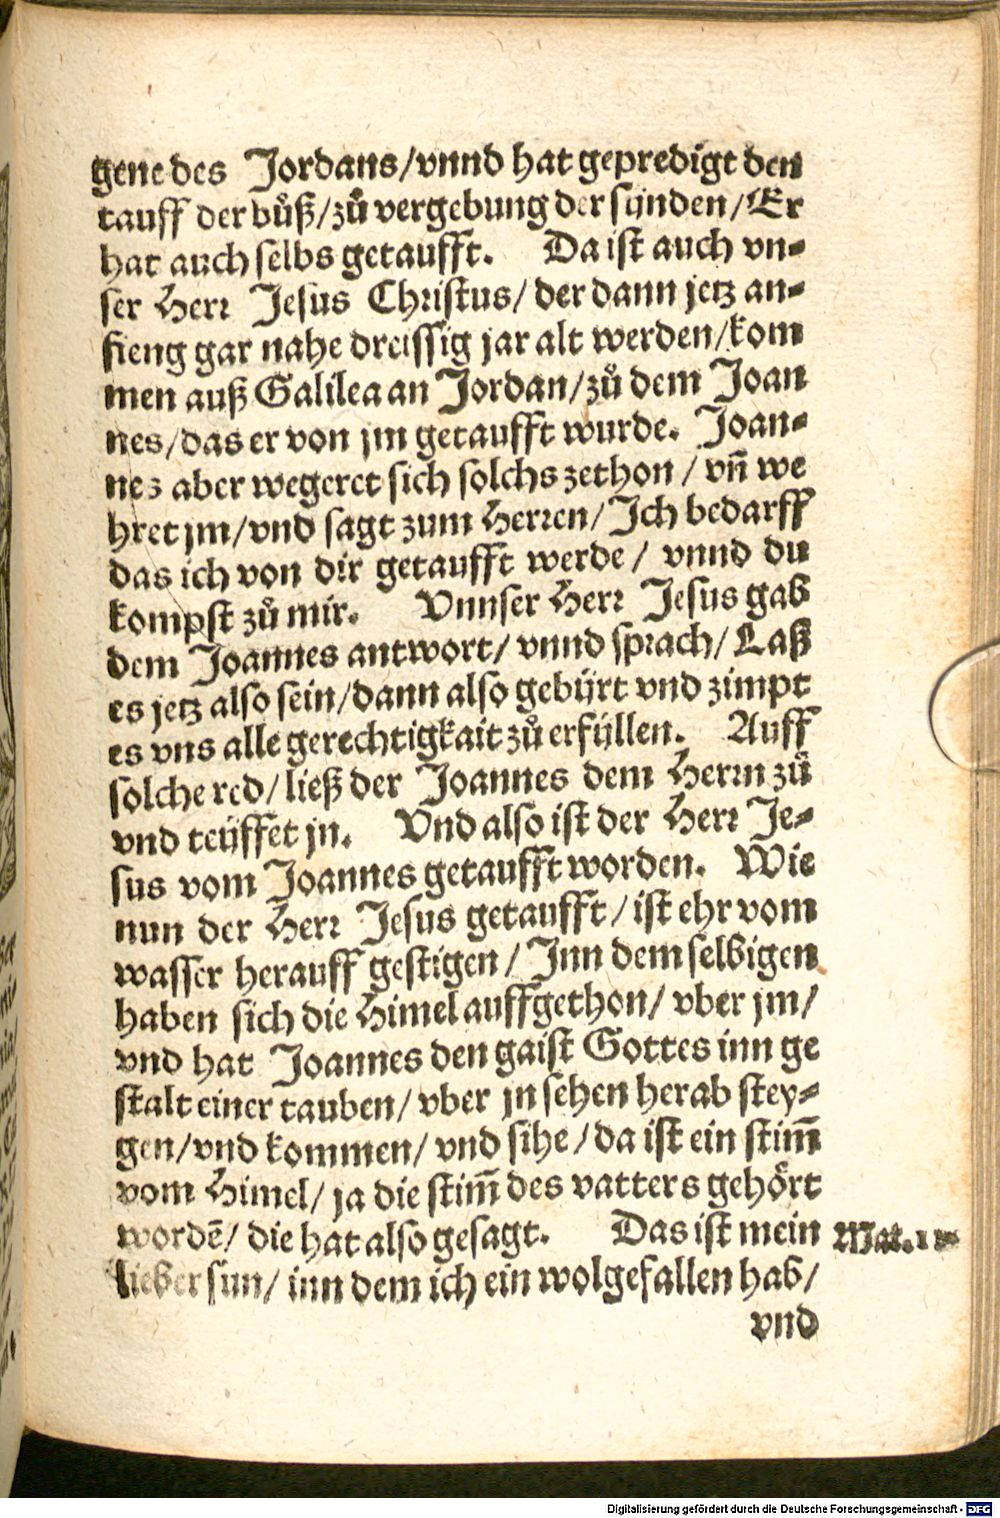 gene des Jordans/vnnd hat gepredigt den
tauff der bůß/zů vergebung der sünden/Er
hat auch selbs getaufft. Da ist auch vn-
ser Herr Jesus Christus/der dann jetz an-
fieng gar nahe dreissig jar alt werden/kom
men auß Galilea an Jordan/zů dem Joan
nes/das er von jm getaufft wurde. Joan-
nes aber wegeret sich solchs zethon/vñ we
hret jm/vnd sagt zum Herren/Ich bedarff
das ich von dir getaufft werde/ vnnd du
kompst zů mir. Vnnser Herr Jesus gab
dem Joannes antwort/vnnd sprach/Laß
es jetz also sein/dann also gebürt vnd zimpt
es vns alle gerechtigkait zů erfüllen. Auff
solche red/ließ der Joannes dem Herrn zů
vnd teüffet jn. Vnd also ist der Herr Je-
sus vom Joannes getaufft worden. Wie
nun der Herr Jesus getaufft/ist ehr vom
wasser herauff gestigen/Inn dem selbigen
haben sich die Himel auffgethon/vber jm/
vnd hat Joannes den gaist Gottes inn ge
stalt einer tauben/vber jn sehen herab stey-
gen/vnd kommen/vnd sihe/da ist ein stim̄
vom Himel/ja die stim̄ des vatters gehört
wordē/die hat also gesagt. Das ist mein
lieber sun/inn dem ich ein wolgefallen hab/
vnd
Mat.1
Digitalisierung gefördert durch die Deutsche Forschungsgemeinschaft - DFG